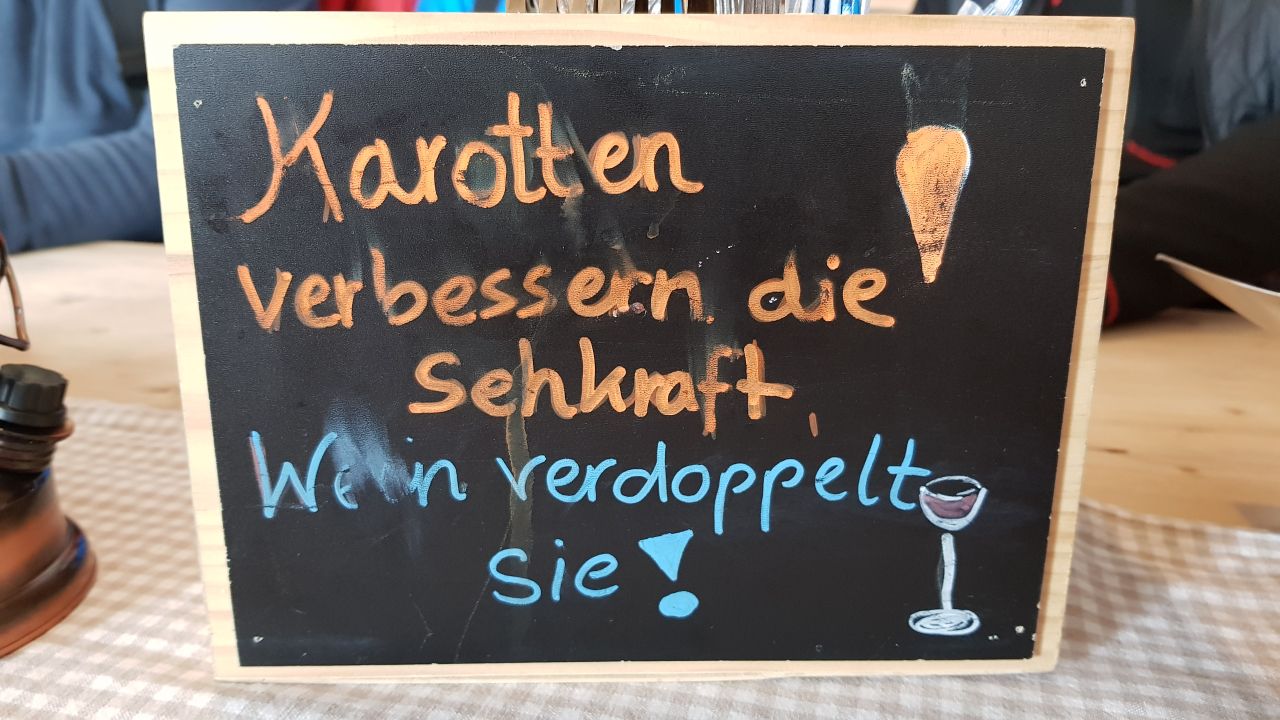 Karotten
verbessern die
Sehkraft,
Wein verdoppelt
sie!